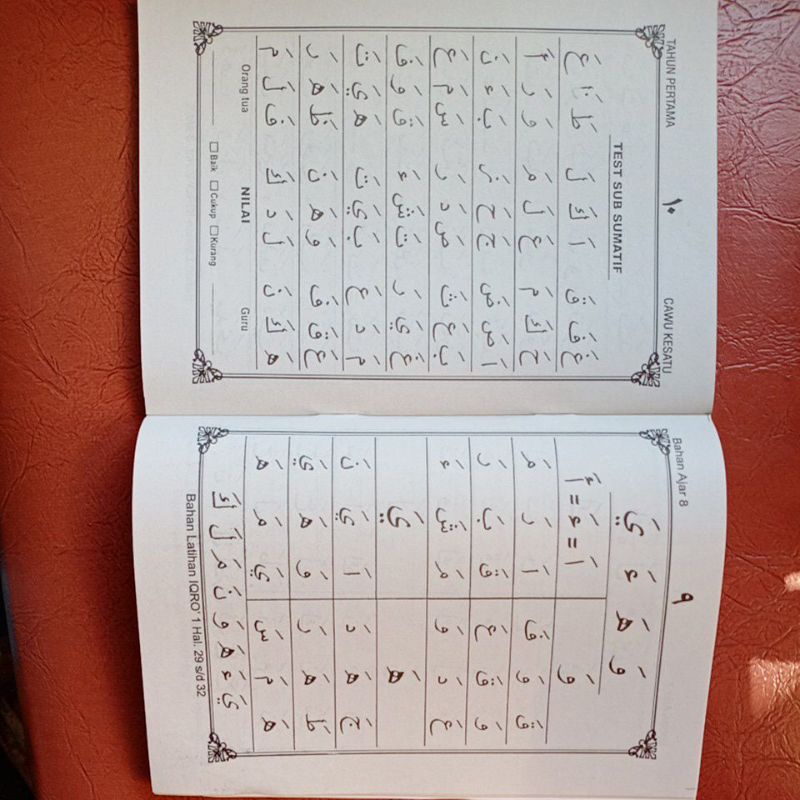 TAHUN PERTAMA ١٠ CAWU KESATU
TEST SUB SUMATIF
غَ فَ قَ اَ كَ لَ طَ عَ
حَ كَ مَ عَ لَ مَ وَ رَ أَ
اَ صَ ضَ جَ حَ بَ ءَ نَ
بَ عَ ثَ صَ دَ رَ سَ مَ عَ
غَ يَ رَ تَ شَ ءَ قَ وَ فَ
مَ دَ عَ بَ يَ تَ هَ يَ تَ
عَ قَ فَ وَ هَ نَ ظَ هَ رَ
هَ كَ نَ لَ دَ كَ قَ لَ مَ
Orang tua NILAI Guru
Baik Cukup Kurang
Bahan Ajar 8 ٩
وَ هَ ءَ يَ
وَ اَ = ءَ = أَ
قَ وَ فَ اَ رَ مَ
وَ قَ عَ قَ بَ رَ
عَ دَ وَ مَ شَ ءَ
هَ يَ
جَ هَ دَ اَ يَ نَ
ظَ هَ رَ وَ هَ يَ
هَ مَ سَ يَ مَ هَ
يَ ءَ هَ وَ نَ مَ لَ كَ
Bahan Latihan IQRO' 1 Hal. 29 s/d 32